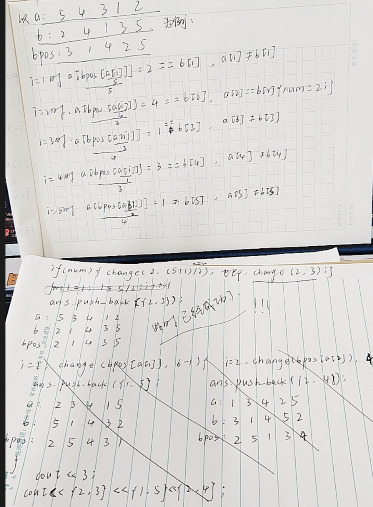 a: 5 4 3 1 2
b: 2 4 1 3 5
bpos: 3 1 4 2 5
i=1时 a[bpos[a[i]]] = 2 == b[1], a[1] ≠ b[1]
5
i=2时 a[bpos[a[i]]] = 4 == b[2], a[2]==b[2]{num=2;}
2
i=3时 a[bpos[a[i]]] = 1 == b[3], a[3] ≠ b[3]
4
i=4时 a[bpos[a[i]]] = 3 == b[4], a[4] ≠ b[4]
3
i=5时 a[bpos[a[i]]] = 1 ≠ b[5], a[5] ≠ b[5]
if(num){ change(2, (5+1)/2); change(2,3);}
ans.push_back({2,3});
a: 5 3 4 1 2
b: 2 1 4 3 5
bpos: 2 1 4 3 5
!!!
change(bpos[a[i]], 6-1);
ans.push_back({1,5});
a: 2 3 4 1 5
b: 5 1 4 3 2
bpos: 2 5 4 3 1
i=2, change(bpos[a[2]], 4
ans.push_back({2,4});
a: 1 3 4 2 5
b: 3 1 4 5 2
bpos: 2 5 1 3 4
cout << 3;
cout << {2,3} << {1,5} << {2,4};